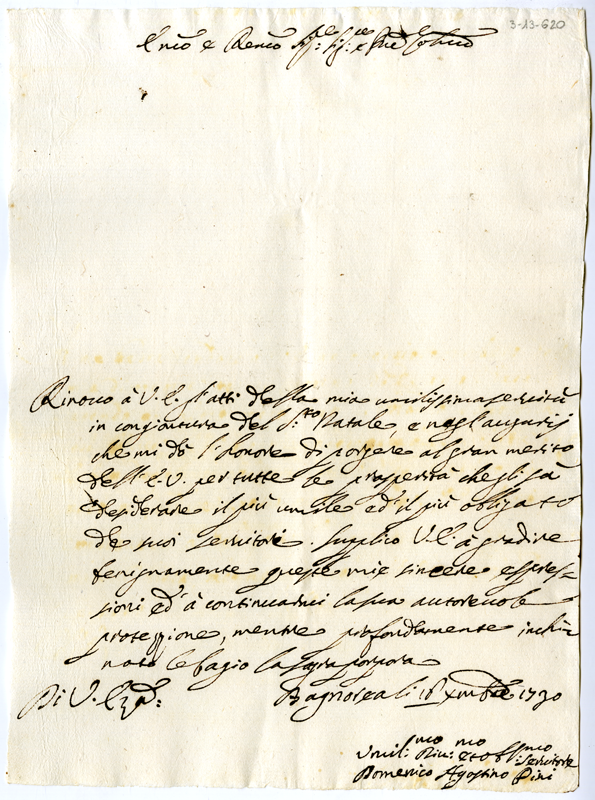 3-13-620
Em̅o e Reu̅o Sig.re Sig.re e Pn̅e Col̅mo
Rinouo à V. E. gl'atti della mia umilissima seruitù
in congiontura del S.to Natale, e negl'augurij
che mi dò l'honore di porgere al gran merito
dell'E. V. per tutte le prosperità che gli sà
desiderare il più umile ed il più obligato
de suoi seruitori. supplico V. E. à gradire
benignamente queste mie sincere espres-
sioni ed' à continuarmi la sua autoreuole
protezzione, mentre profondamente inchi-
nato le bagio la sagra porpora
Di V. E.
Bagnorea li 18 Xmbre 1730
Umil.mo Diu.mo et Obl.mo Seruitore
Domenico Agostino Pini